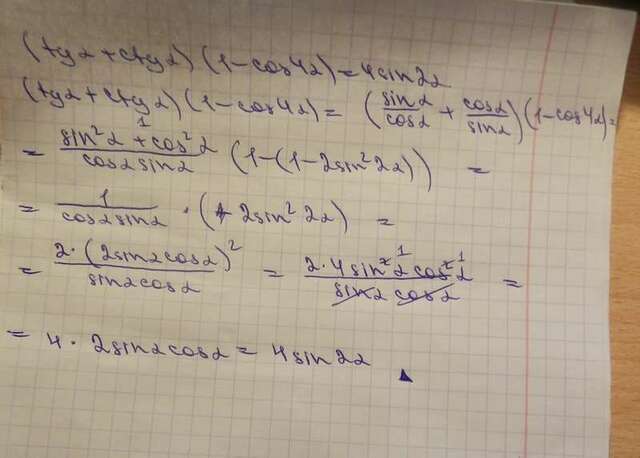 (tgα + ctgα)(1-cos4α) = 4sin2α
(tgα + ctgα)(1-cos4α) = (sinα/cosα + cosα/sinα)(1-cos4α) =
= (sin²α + cos²α)/(cosα sinα) (1-(1-2sin²2α)) =
= 1/(cosα sinα) · (2sin²2α) =
= 2·(2sinαcosα)²/(sinαcosα) = 2·4sin²αcos²α/(sinα cosα) =
= 4·2sinαcosα = 4sin2α ▲